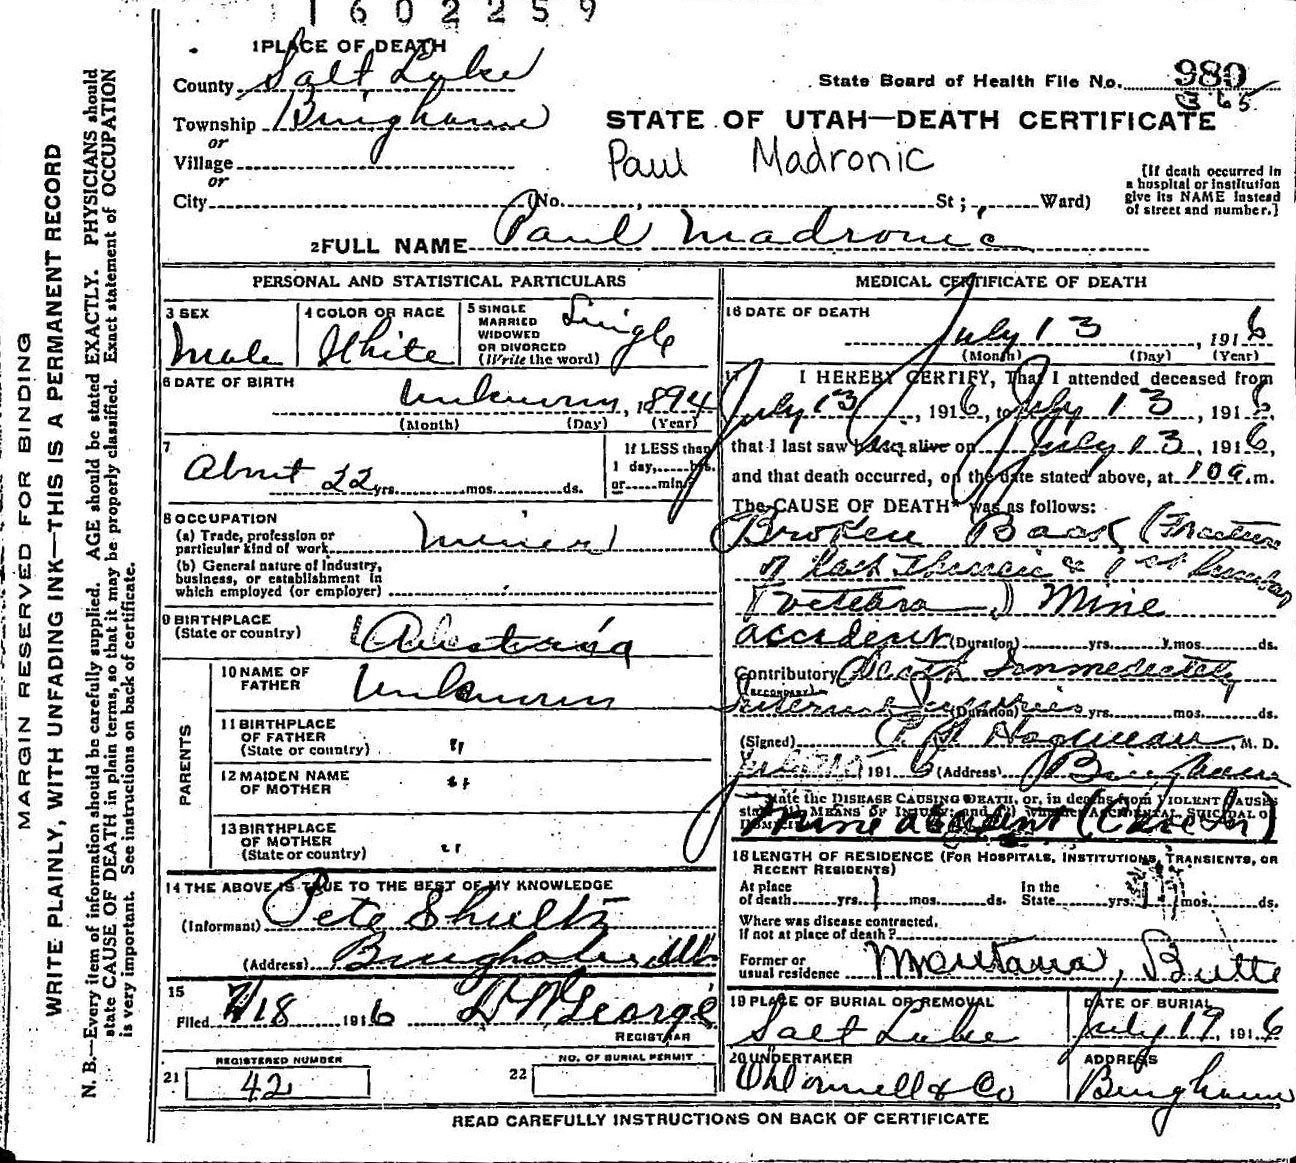 1602259
1 PLACE OF DEATH
County Salt Lake
State Board of Health File No. 980
Township Bingham
STATE OF UTAH—DEATH CERTIFICATE
or
Village
Paul Madronic
or
City (No. , St; Ward)
[If death occurred in a hospital or institution give its NAME instead of street and number.]
2 FULL NAME Paul Madronic
MARGIN RESERVED FOR BINDING
WRITE PLAINLY, WITH UNFADING INK—THIS IS A PERMANENT RECORD
N. B.—Every item of information should be carefully supplied. AGE should be stated EXACTLY. PHYSICIANS should
state CAUSE OF DEATH in plain terms, so that it may be properly classified. Exact statement of OCCUPATION
is very important. See instructions on back of certificate.
PERSONAL AND STATISTICAL PARTICULARS
3 SEX
Male
4 COLOR OR RACE
White
5 SINGLE
MARRIED
WIDOWED
OR DIVORCED
(Write the word)
Single
6 DATE OF BIRTH
Unknown, 1894
(Month) (Day) (Year)
7
About 22 yrs. mos. ds.
If LESS than
1 day, hrs.
or min?
8 OCCUPATION
(a) Trade, profession or
particular kind of work Miner
(b) General nature of industry,
business, or establishment in
which employed (or employer)
9 BIRTHPLACE
(State or country) Austria
PARENTS
10 NAME OF
FATHER Unknown
11 BIRTHPLACE
OF FATHER
(State or country) "
12 MAIDEN NAME
OF MOTHER "
13 BIRTHPLACE
OF MOTHER
(State or country) "
14 THE ABOVE IS TRUE TO THE BEST OF MY KNOWLEDGE
(Informant) Pete Shultz
(Address) Bingham Ut.
15
Filed 7/18 1916 D W George
REGISTRAR
REGISTERED NUMBER
21 42
NO. OF BURIAL PERMIT
22
MEDICAL CERTIFICATE OF DEATH
16 DATE OF DEATH
July 13, 1916
(Month) (Day) (Year)
17 I HEREBY CERTIFY, That I attended deceased from
July 13, 1916, to July 13, 1916
that I last saw alive on July 13, 1916,
and that death occurred, on the date stated above, at 10 a.m.
The CAUSE OF DEATH* was as follows:
Broken Back (Fracture
of Last Thoracic & 1st Lumbar
vertebra) Mine
accident (Duration) yrs. mos. ds.
Contributory Death Immediately
(SECONDARY)
Internal Injuries (Duration) yrs. mos. ds.
(Signed) M. D.
1916 (Address) Bingham
*State the DISEASE CAUSING DEATH, or, in deaths from VIOLENT CAUSES
state MEANS OF INJURY; and (2) whether ACCIDENTAL, SUICIDAL or
HOMICIDAL
Mine accident
18 LENGTH OF RESIDENCE (FOR HOSPITALS, INSTITUTIONS, TRANSIENTS, OR
RECENT RESIDENTS)
At place
of death yrs. 1 mos. ds.
In the
State yrs. mos. ds.
Where was disease contracted,
if not at place of death?
Former or
usual residence Montana, Butte
19 PLACE OF BURIAL OR REMOVAL
Salt Lake
DATE OF BURIAL
July 19, 1916
20 UNDERTAKER
O'Donnell & Co
ADDRESS
Bingham
READ CAREFULLY INSTRUCTIONS ON BACK OF CERTIFICATE